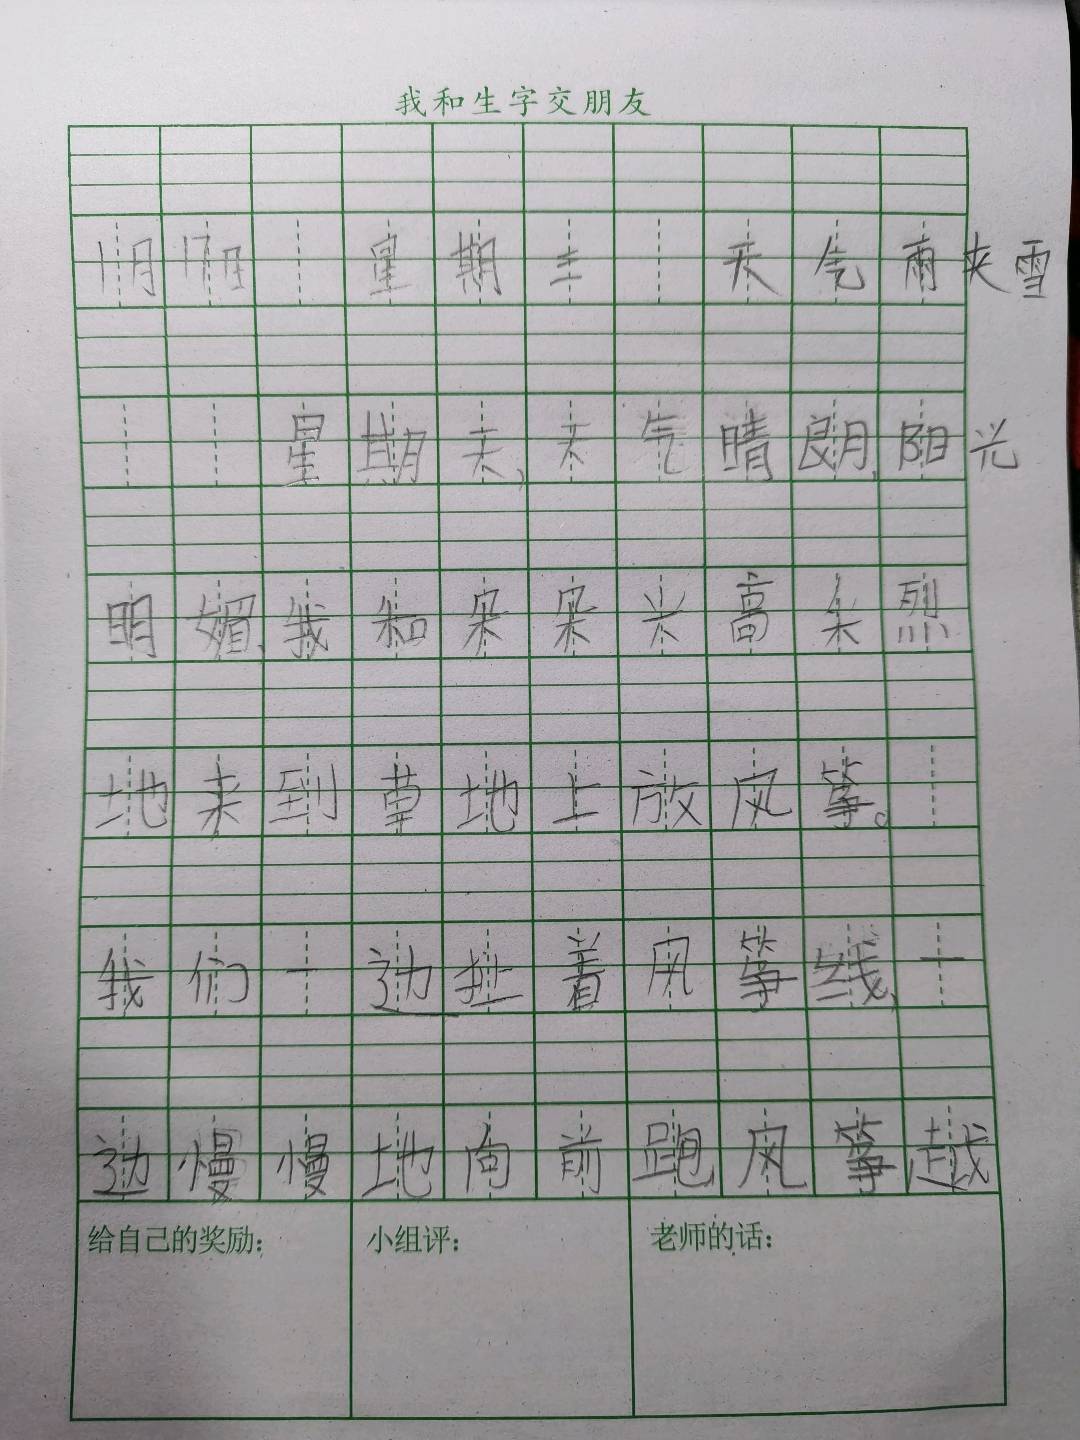 我和生字交朋友
1月17日 星期三 天气雨夹雪
星期天,天气晴朗,阳光
明媚,我和朵朵兴高采烈
地来到草地上放风筝。
我们一边扯着风筝线,一
边慢慢地向前跑风筝越
给自己的奖励:
小组评:
老师的话: